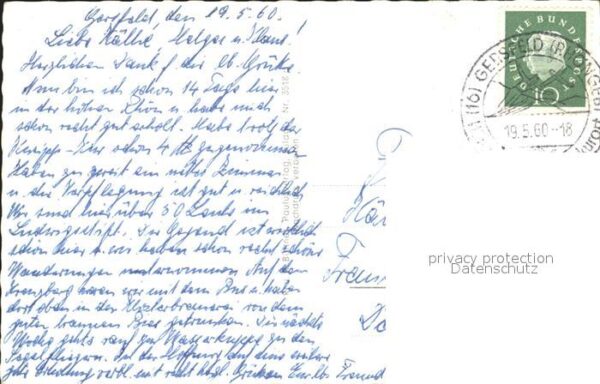 Gersfeld, den 19.5.60.
Liebe Käthe, Helga u. Klaus!
Herzlichen Dank f. die lb. Grüße.
Nun bin ich schon 14 Tage hier
in der hohen Rhön u. habe mich
schon recht gut erholt. Habe trotz der
Kneipp-Kur schon 4 ℔ zugenommen.
Haben zu zweit ein nettes Zimmer
u. die Verpflegung ist gut u. reichlich.
Wir sind hier über 50 Leute im
Ludwigstift. Die Gegend ist wirklich
schön hier u. wir haben schon recht schöne
Wanderungen unternommen. Auf dem
Kreuzberg waren wir mit dem Bus u. haben
dort oben in der Klosterbrauerei von dem
guten braunen Bier getrunken. Die nächste
Woche gehts rauf zur Wasserkuppe zu den
Segelfliegern. In der Hoffnung auf
gute verbl. mit recht herzl. Grüßen Eure lb.
DEUTSCHE BUNDESPOST
10
(16) GERSFELD (RHÖN)
19.5.60-18
privacy protection
Datenschutz